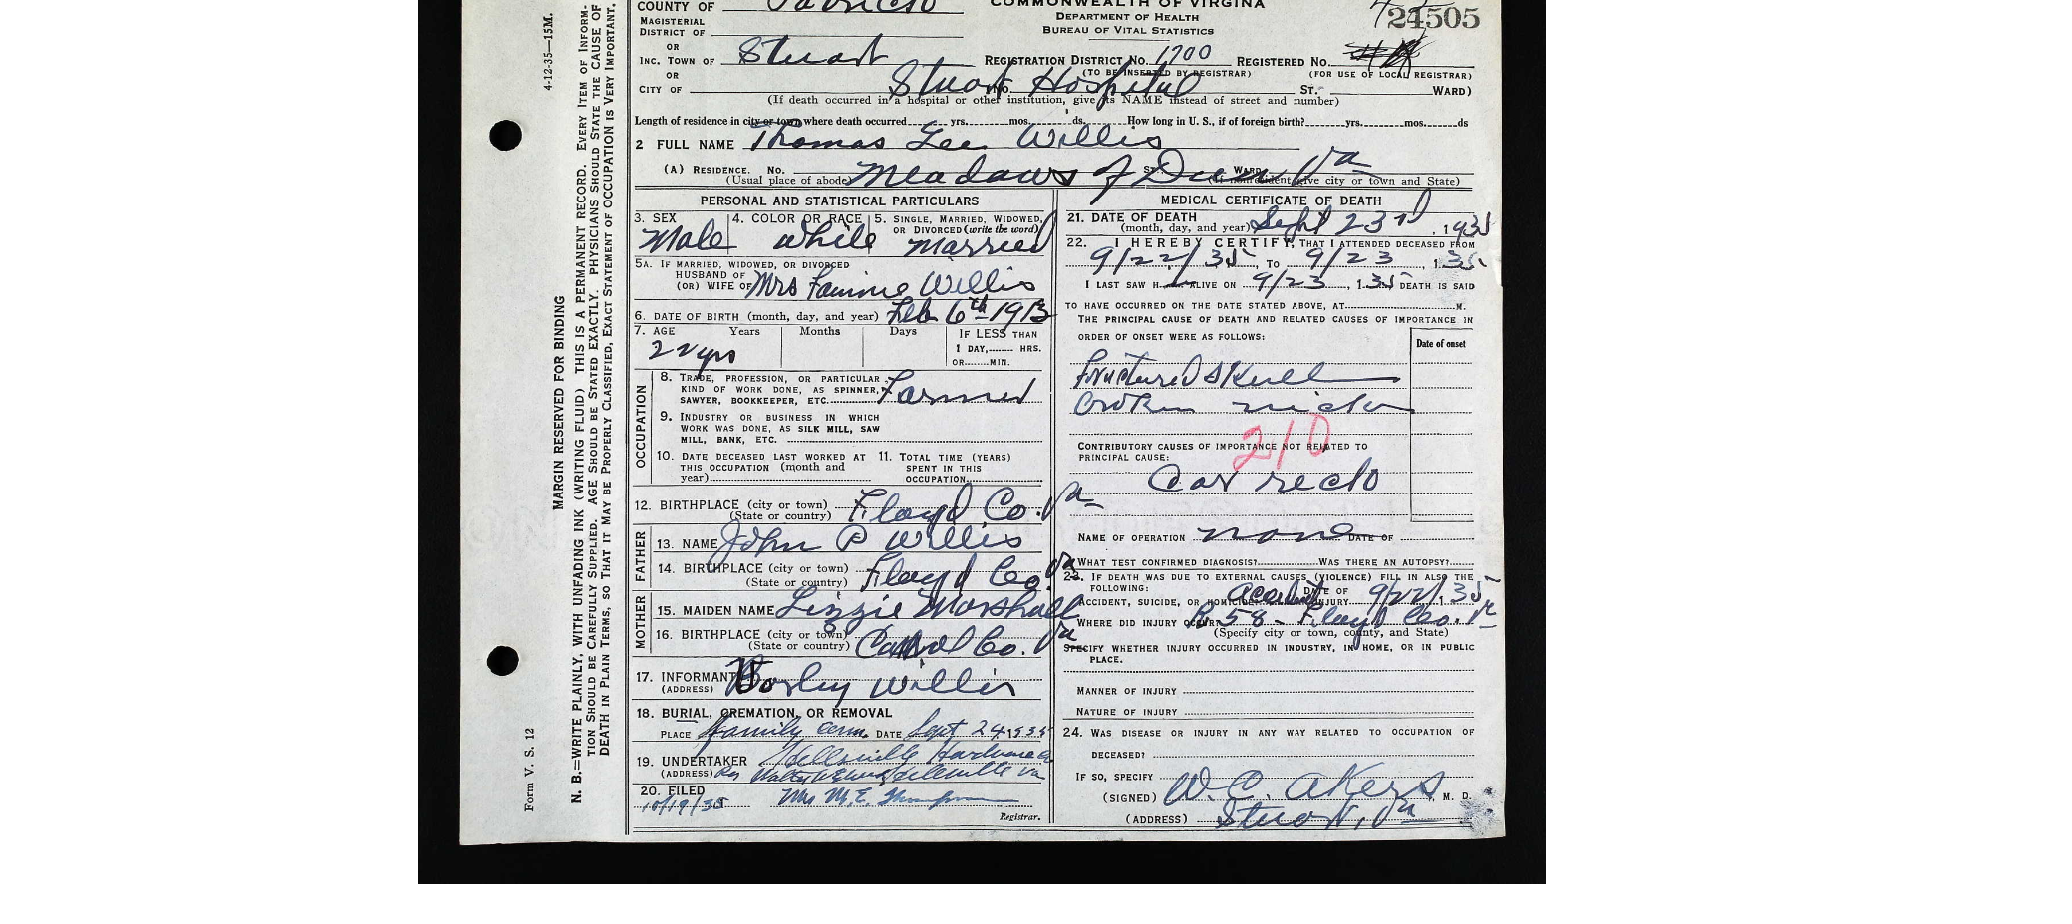 COUNTY OF
COMMONWEALTH OF VIRGINIA
24505
MAGISTERIAL
DISTRICT OF
DEPARTMENT OF HEALTH
BUREAU OF VITAL STATISTICS
OR
INC. TOWN OF Stuart
REGISTRATION DISTRICT No. 1700 REGISTERED No.
OR
(TO BE INSERTED BY REGISTRAR) (FOR USE OF LOCAL REGISTRAR)
CITY OF No. Stuart Hospital ST. WARD)
(If death occurred in a hospital or other institution, give its NAME instead of street and number)
Length of residence in city or town where death occurred yrs. mos. ds. How long in U. S., if of foreign birth? yrs. mos. ds
2 FULL NAME Thomas Lee Willis
(A) RESIDENCE. No. Meadows of Dan Va ST. WARD
(Usual place of abode) (If nonresident give city or town and State)
PERSONAL AND STATISTICAL PARTICULARS
3. SEX 4. COLOR OR RACE 5. SINGLE, MARRIED, WIDOWED,
OR DIVORCED (write the word)
Male white married
5A. IF MARRIED, WIDOWED, OR DIVORCED
HUSBAND OF
(OR) WIFE OF Mrs Fannie Willis
6. DATE OF BIRTH (month, day, and year) Feb 6th 1913
7. AGE Years Months Days IF LESS THAN
1 DAY, HRS.
OR MIN.
22 yrs
OCCUPATION
8. TRADE, PROFESSION, OR PARTICULAR
KIND OF WORK DONE, AS SPINNER,
SAWYER, BOOKKEEPER, ETC. Farmer
9. INDUSTRY OR BUSINESS IN WHICH
WORK WAS DONE, AS SILK MILL, SAW
MILL, BANK, ETC.
10. DATE DECEASED LAST WORKED AT
THIS OCCUPATION (month and
year)
11. TOTAL TIME (YEARS)
SPENT IN THIS
OCCUPATION
12. BIRTHPLACE (city or town)
(State or country) Floyd Co. Va
FATHER
13. NAME John P Willis
14. BIRTHPLACE (city or town)
(State or country) Floyd Co. Va
MOTHER
15. MAIDEN NAME Lizzie Marshall
16. BIRTHPLACE (city or town)
(State or country) Carroll Co. Va
17. INFORMANT Willis
(ADDRESS)
18. BURIAL, CREMATION, OR REMOVAL
PLACE family cem. DATE Sept 24 1935
19. UNDERTAKER Hillsville Hardware Co
(ADDRESS) Hillsville Va
20. FILED
10/19/35 Mrs M. E. Thompson
Registrar.
MEDICAL CERTIFICATE OF DEATH
21. DATE OF DEATH
(month, day, and year) Sept 23rd, 1935
22. I HEREBY CERTIFY, THAT I ATTENDED DECEASED FROM
9/22/35, TO 9/23, 1 35
I LAST SAW H ALIVE ON 9/23, 1 35 DEATH IS SAID
TO HAVE OCCURRED ON THE DATE STATED ABOVE, AT M.
THE PRINCIPAL CAUSE OF DEATH AND RELATED CAUSES OF IMPORTANCE IN
ORDER OF ONSET WERE AS FOLLOWS:
Date of onset
Fractured Skull
Broken neck
210
CONTRIBUTORY CAUSES OF IMPORTANCE NOT RELATED TO
PRINCIPAL CAUSE:
Car
NAME OF OPERATION none DATE OF
WHAT TEST CONFIRMED DIAGNOSIS? WAS THERE AN AUTOPSY?
23. IF DEATH WAS DUE TO EXTERNAL CAUSES (VIOLENCE) FILL IN ALSO THE
FOLLOWING:
ACCIDENT, SUICIDE, OR HOMICIDE? Accident DATE OF INJURY 9/22/, 35
WHERE DID INJURY OCCUR? R. 58 - Floyd Co. Va
(Specify city or town, county, and State)
SPECIFY WHETHER INJURY OCCURRED IN INDUSTRY, IN HOME, OR IN PUBLIC
PLACE.
MANNER OF INJURY
NATURE OF INJURY
24. WAS DISEASE OR INJURY IN ANY WAY RELATED TO OCCUPATION OF
DECEASED?
IF SO, SPECIFY
(SIGNED) W. C. Akers, M. D.
(ADDRESS) Stuart, Va
4-12-35—15M.
MARGIN RESERVED FOR BINDING
Form V. S. 12
N. B.—WRITE PLAINLY, WITH UNFADING INK (WRITING FLUID) THIS IS A PERMANENT RECORD. EVERY ITEM OF INFORM-
TION SHOULD BE CAREFULLY SUPPLIED. AGE SHOULD BE STATED EXACTLY. PHYSICIANS SHOULD STATE THE CAUSE OF
DEATH IN PLAIN TERMS, SO THAT IT MAY BE PROPERLY CLASSIFIED. EXACT STATEMENT OF OCCUPATION IS VERY IMPORTANT.